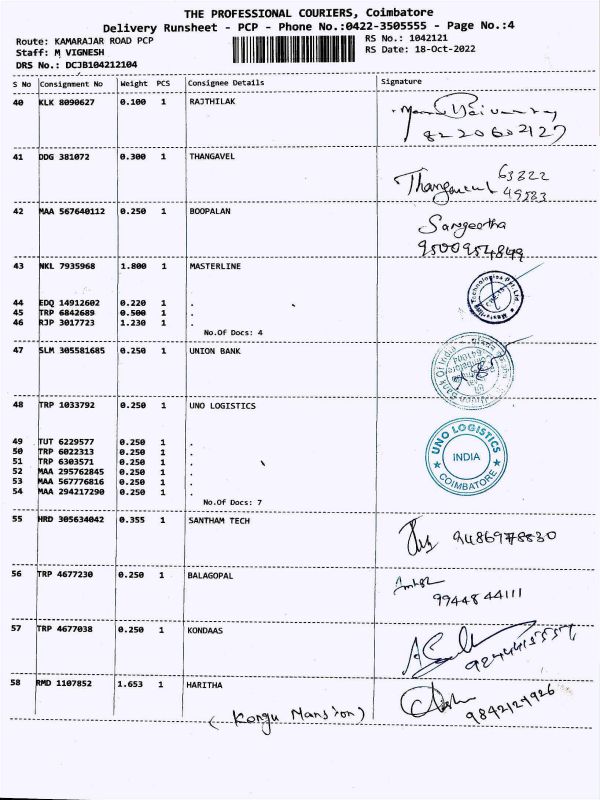 THE PROFESSIONAL COURIERS, Coimbatore
Delivery Runsheet - PCP - Phone No.:0422-3505555 - Page No.:4
Route: KAMARAJAR ROAD PCP RS No.: 1042121
Staff: M VIGNESH RS Date: 18-Oct-2022
DRS No.: DCJB104212104
S No Consignment No Weight PCS Consignee Details Signature
40 KLK 8090627 0.100 1 RAJTHILAK
8220602127
41 DDG 381072 0.300 1 THANGAVEL
Thangavel 63822
49583
42 MAA 567640112 0.250 1 BOOPALAN Sangeetha
9500954849
43 NKL 7935968 1.800 1 MASTERLINE
44 EDQ 14912602 0.220 1 .
45 TRP 6842689 0.500 1 .
46 RJP 3017723 1.230 1 .
No.Of Docs: 4
47 SLM 305581685 0.250 1 UNION BANK
Union Bank Of India
48 TRP 1033792 0.250 1 UNO LOGISTICS
UNO LOGISTICS
INDIA
COIMBATORE
49 TUT 6229577 0.250 1 .
50 TRP 6022313 0.250 1 .
51 TRP 6303571 0.250 1 .
52 MAA 295762845 0.250 1 .
53 MAA 567776816 0.250 1 .
54 MAA 294217290 0.250 1 .
No.Of Docs: 7
55 HRD 305634042 0.355 1 SANTHAM TECH
9486978830
56 TRP 4677230 0.250 1 BALAGOPAL
9944844111
57 TRP 4677038 0.250 1 KONDAAS
58 RMD 1107852 1.653 1 HARITHA
9842124926
(Kongu Mansion)